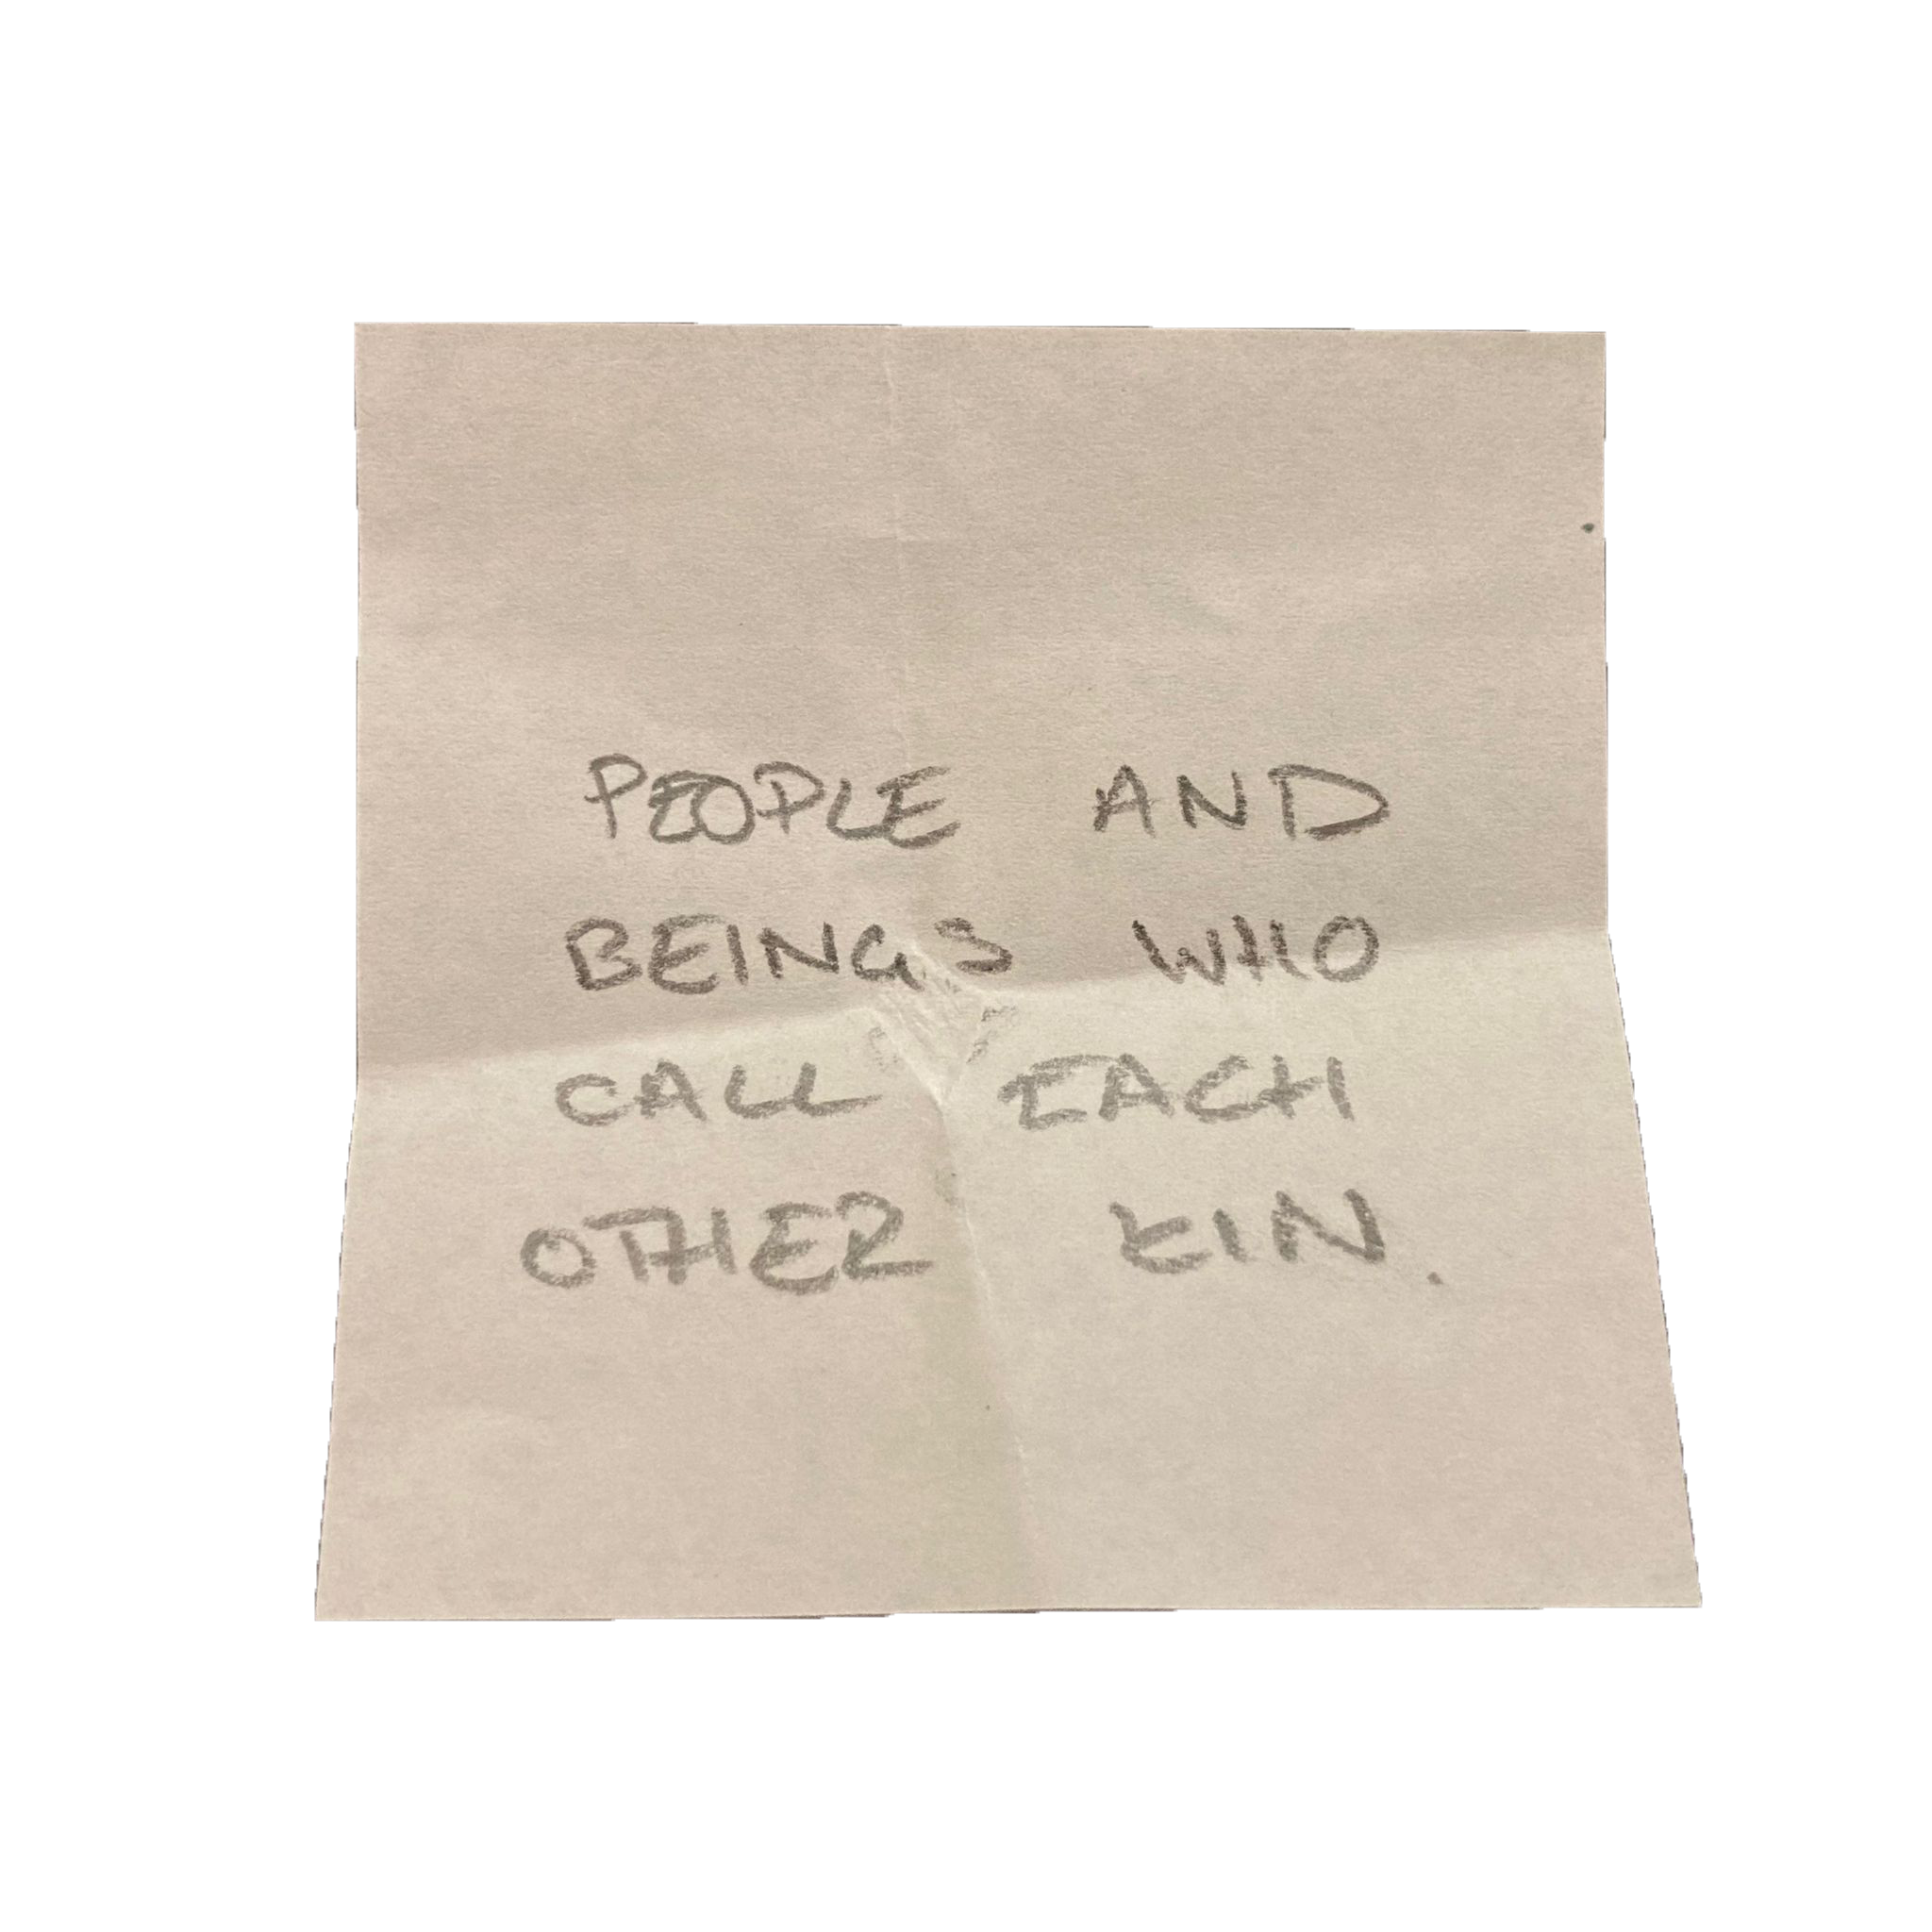 PEOPLE AND
BEINGS WHO
CALL EACH
OTHER KIN.